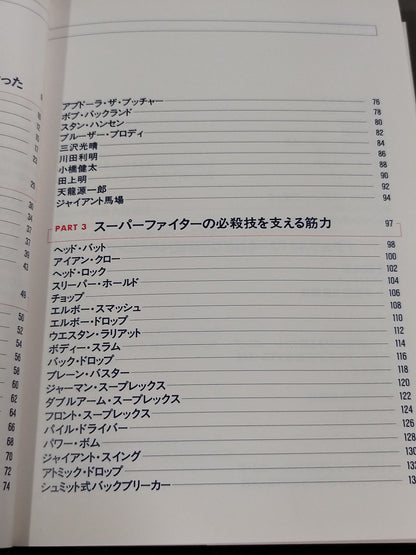 った
8
10
12
15
17
20
23
25
29
34
37
39
43
46
50
52
54
56
58
60
62
64
66
68
70
72
74
アブドーラ・ザ・ブッチャー 76
ボブ・バックランド 78
スタン・ハンセン 80
ブルーザー・ブロディ 82
三沢光晴 84
川田利明 86
小橋健太 88
田上明 90
天龍源一郎 92
ジャイアント馬場 94
PART 3 スーパーファイターの必殺技を支える筋力 97
ヘッド・バット 98
アイアン・クロー 100
ヘッド・ロック 102
スリーパー・ホールド 104
チョップ 106
エルボー・スマッシュ 108
エルボー・ドロップ 110
ウエスタン・ラリアット 112
ボディー・スラム 114
バック・ドロップ 116
ブレーン・バスター 118
ジャーマン・スープレックス 120
ダブルアーム・スープレックス 122
フロント・スープレックス 124
パイル・ドライバー 126
パワー・ボム 128
ジャイアント・スイング 130
アトミック・ドロップ
シュミット式バックブリーカー